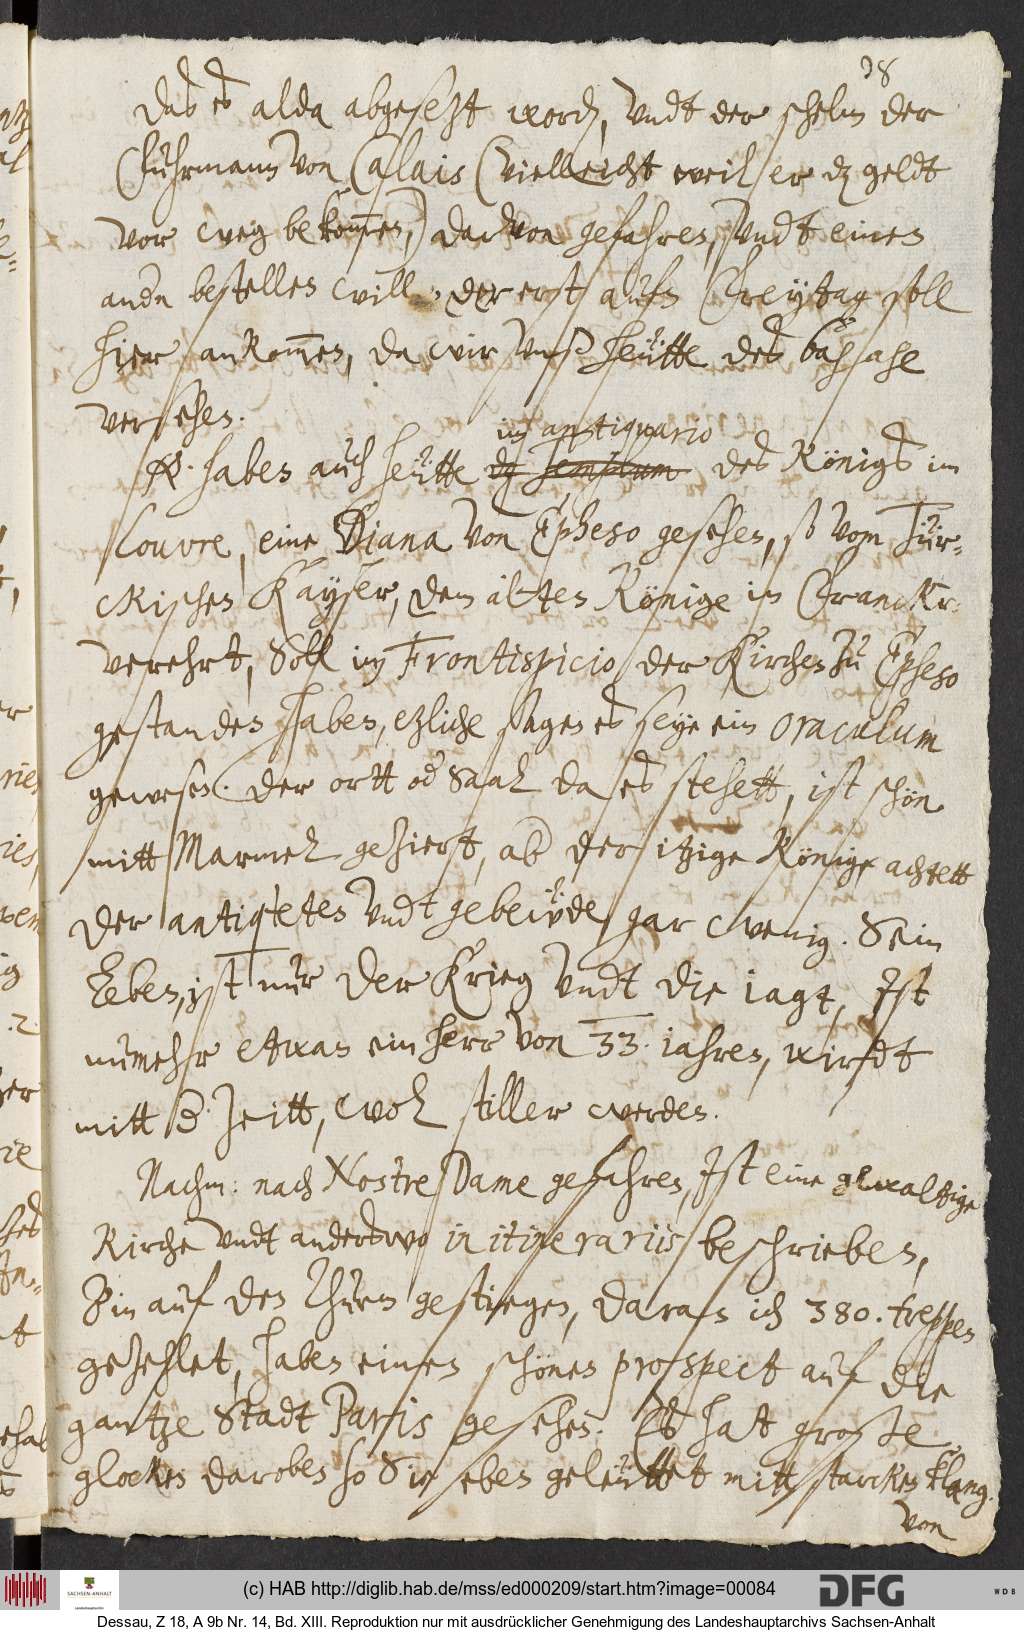 38
daß es alda abgesetzt word, vndt der schelm der
Fuhrmann von Calais (vielleicht weil er dz geldt
vor weg bekom̄en,) darvon gefahren, vndt einen
andn bestellen will, der erst aufn Freyttag soll
hier ankom̄en, da wir vnß heütte deß
versehen.
haben auch heütte im antiquario deß Königß im
Louvre, eine Diana von Epheso gesehen, so vom Tür-
ckischen Kayser, dem alten Könige in Franckr:
verehrt, Soll im Frontispicio der Kirchen zu Epheso
gestanden haben, etzliche sagen es seye ein oraculum
gewesen. Der ortt od Saal da es stehett, ist schön
mitt Marmel geziert, ab der itzige König achtett
der antiqteten vndt gebeüde gar wenig. Sein
Leben, ist nur der Krieg vndt die iagt, Ist
numehr etwan ein herr von 33. iahren, wirdt
mitt d. Zeitt, wol stiller werden.
Nachm: nach Nostre Dame gefahren, Ist eine gewaltige
Kirche vndt anderswo in itinerariis beschrieben,
Bin auf den Thurn gestiegen, daran ich 380. treppen
gezehlet, haben einen schönen prospect auf die
gantze Stadt Paris gesehen. Es hatt grosse
glocken daroben so Sie eben geleüttet mitt starcken klang.
von
(c) HAB http://diglib.hab.de/mss/ed000209/start.htm?image=00084
SACHSEN-ANHALT
DFG
WDB
Dessau, Z 18, A 9b Nr. 14, Bd. XIII. Reproduktion nur mit ausdrücklicher Genehmigung des Landeshauptarchivs Sachsen-Anhalt